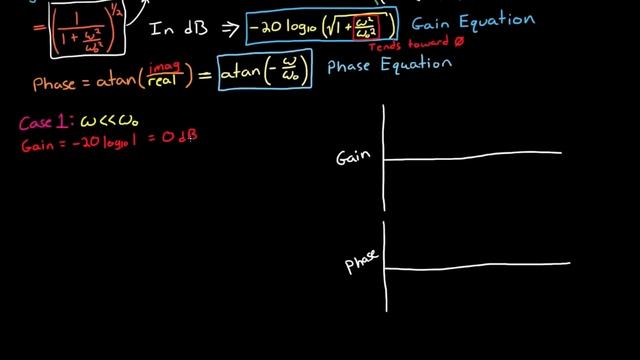 = (1 / (1 + ω²/ω₀²))^1/2 In dB ⇒ -20 log₁₀ (√(1 + ω²/ω₀²)) Gain Equation
Tends toward 0
Phase = atan (imag/real) = atan (-ω/ω₀) Phase Equation
Case 1: ω << ω₀
Gain = -20 log₁₀ 1 = 0 dB
Gain
Phase